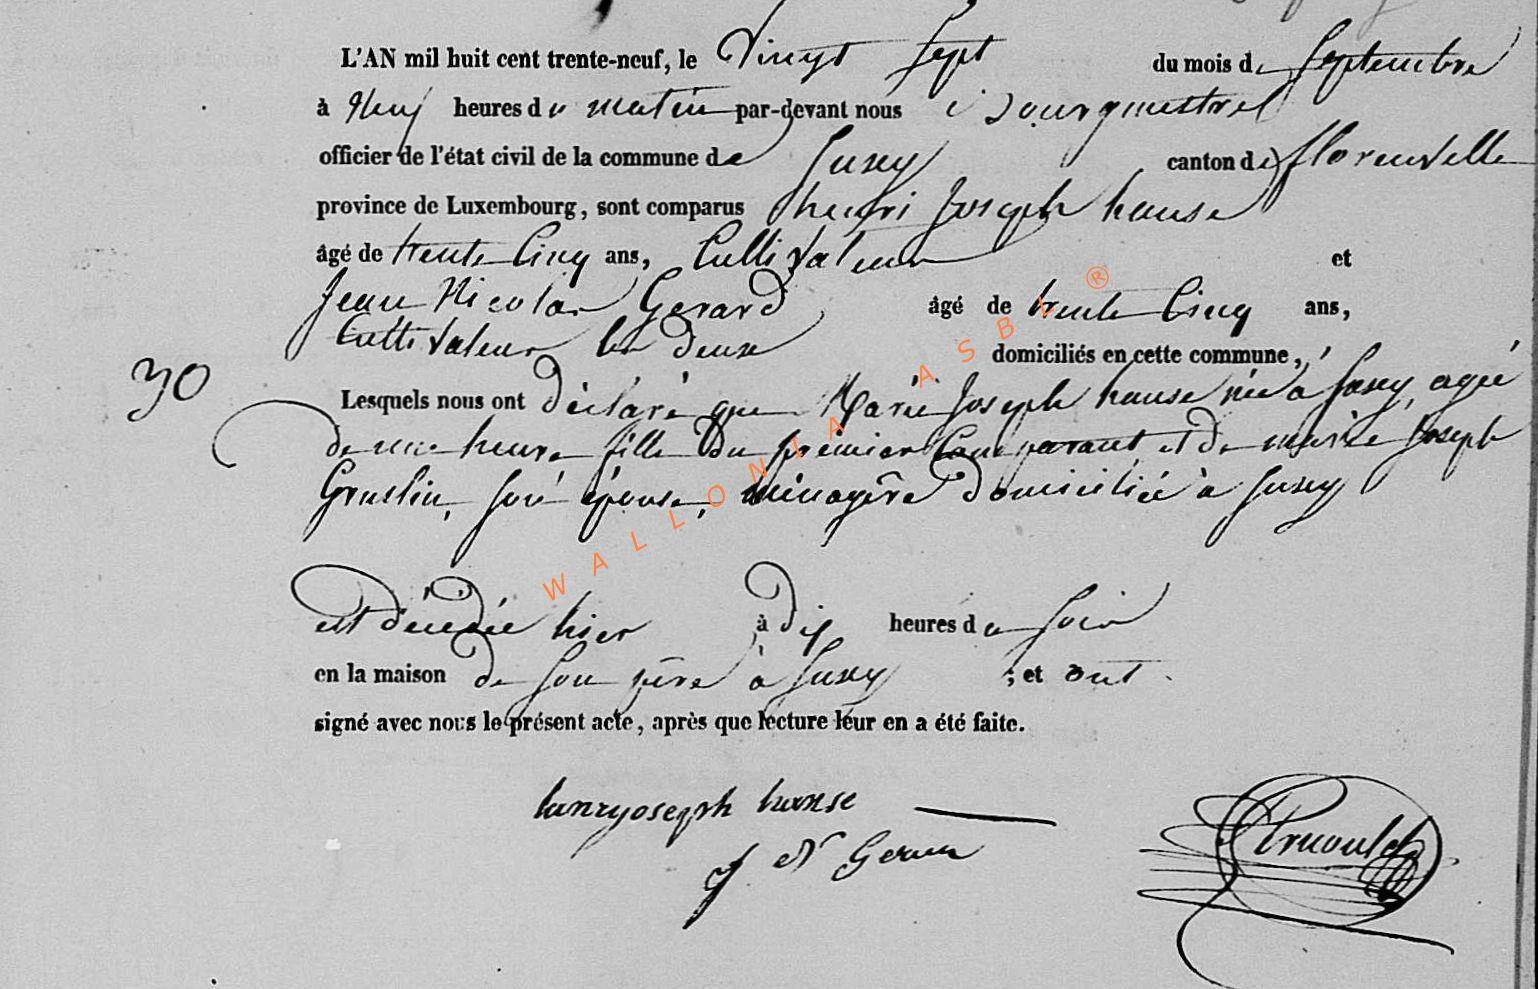 L'AN mil huit cent trente-neuf, le Vingt Sept du mois de Septembre
à Neuf heures du matin par-devant nous Bourgmestre
officier de l'état civil de la commune de Suxy canton de florenville
province de Luxembourg, sont comparus henri Joseph hanse
âgé de trente Cinq ans, Cultivateur et
Jean Nicolas Gerard âgé de trente Cinq ans,
Cultivateur les deux domiciliés en cette commune,
30
Lesquels nous ont déclaré que Marie Joseph hanse née à Suxy, agée
de une heure fille du premier Comparant et de marie Joseph
Gruslin, son épouse, ménagère domiciliée à Suxy
est décédée hier à dix heures du soir
en la maison de son père à Suxy ; et ont
signé avec nous le présent acte, après que lecture leur en a été faite.
henryoseph hanse
J N Gerard
WALLONIA ASBL ®